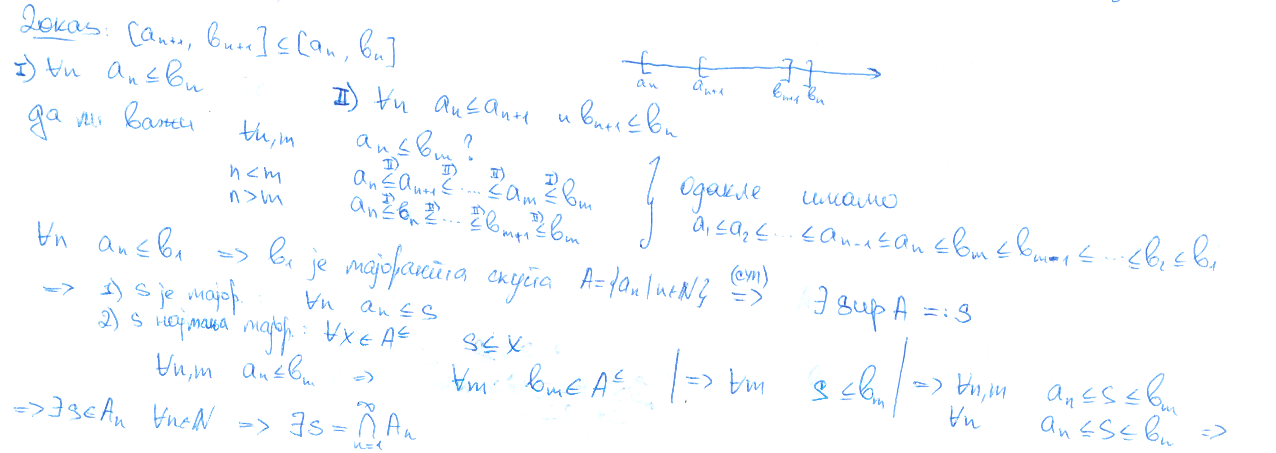 Доказ: [aₙ₊₁, bₙ₊₁] ⊆ [aₙ, bₙ]
aₙ aₙ₊₁ bₙ₊₁ bₙ
I) ∀n aₙ ≤ bₙ
II) ∀n aₙ ≤ aₙ₊₁ и bₙ₊₁ ≤ bₙ
да ли важи ∀n,m aₙ ≤ bₘ ?
n < m aₙ ≤ᴵᴵ⁾ aₙ₊₁ ≤ᴵᴵ⁾ ... ≤ᴵᴵ⁾ aₘ ≤ᴵ⁾ bₘ
n > m aₙ ≤ᴵ⁾ bₙ ≤ᴵᴵ⁾ ... ≤ᴵᴵ⁾ bₘ₊₁ ≤ᴵᴵ⁾ bₘ
} одакле имамо
a₁ ≤ a₂ ≤ ... ≤ aₙ₋₁ ≤ aₙ ≤ bₘ ≤ bₘ₋₁ ≤ ... ≤ b₂ ≤ b₁
∀n aₙ ≤ b₁ => b₁ је мајоранта скупа A = {aₙ | n∈ℕ} (суп) => ∃ sup A =: s
=> 1) s је мајор. ∀n aₙ ≤ s
2) s најмања мајор. : ∀x ∈ A^≤ s ≤ x
∀n,m aₙ ≤ bₘ => ∀m bₘ ∈ A^≤ | => ∀m s ≤ bₘ | => ∀n,m aₙ ≤ s ≤ bₘ
∀n aₙ ≤ s ≤ bₙ =>
=> ∃ s ∈ Aₙ ∀n∈ℕ => ∃ s = ⋂ₙ₌₁^∞ Aₙ